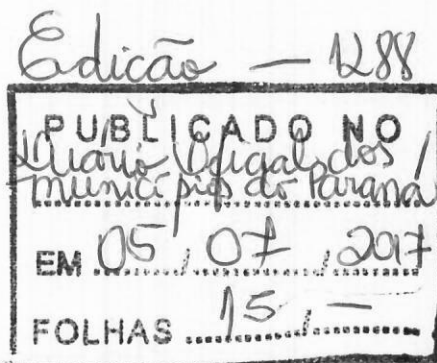 Edição — 1288
PUBLICADO NO
Diário Oficial dos
municípios do Paraná
EM 05 / 07 / 2017
FOLHAS 15 —